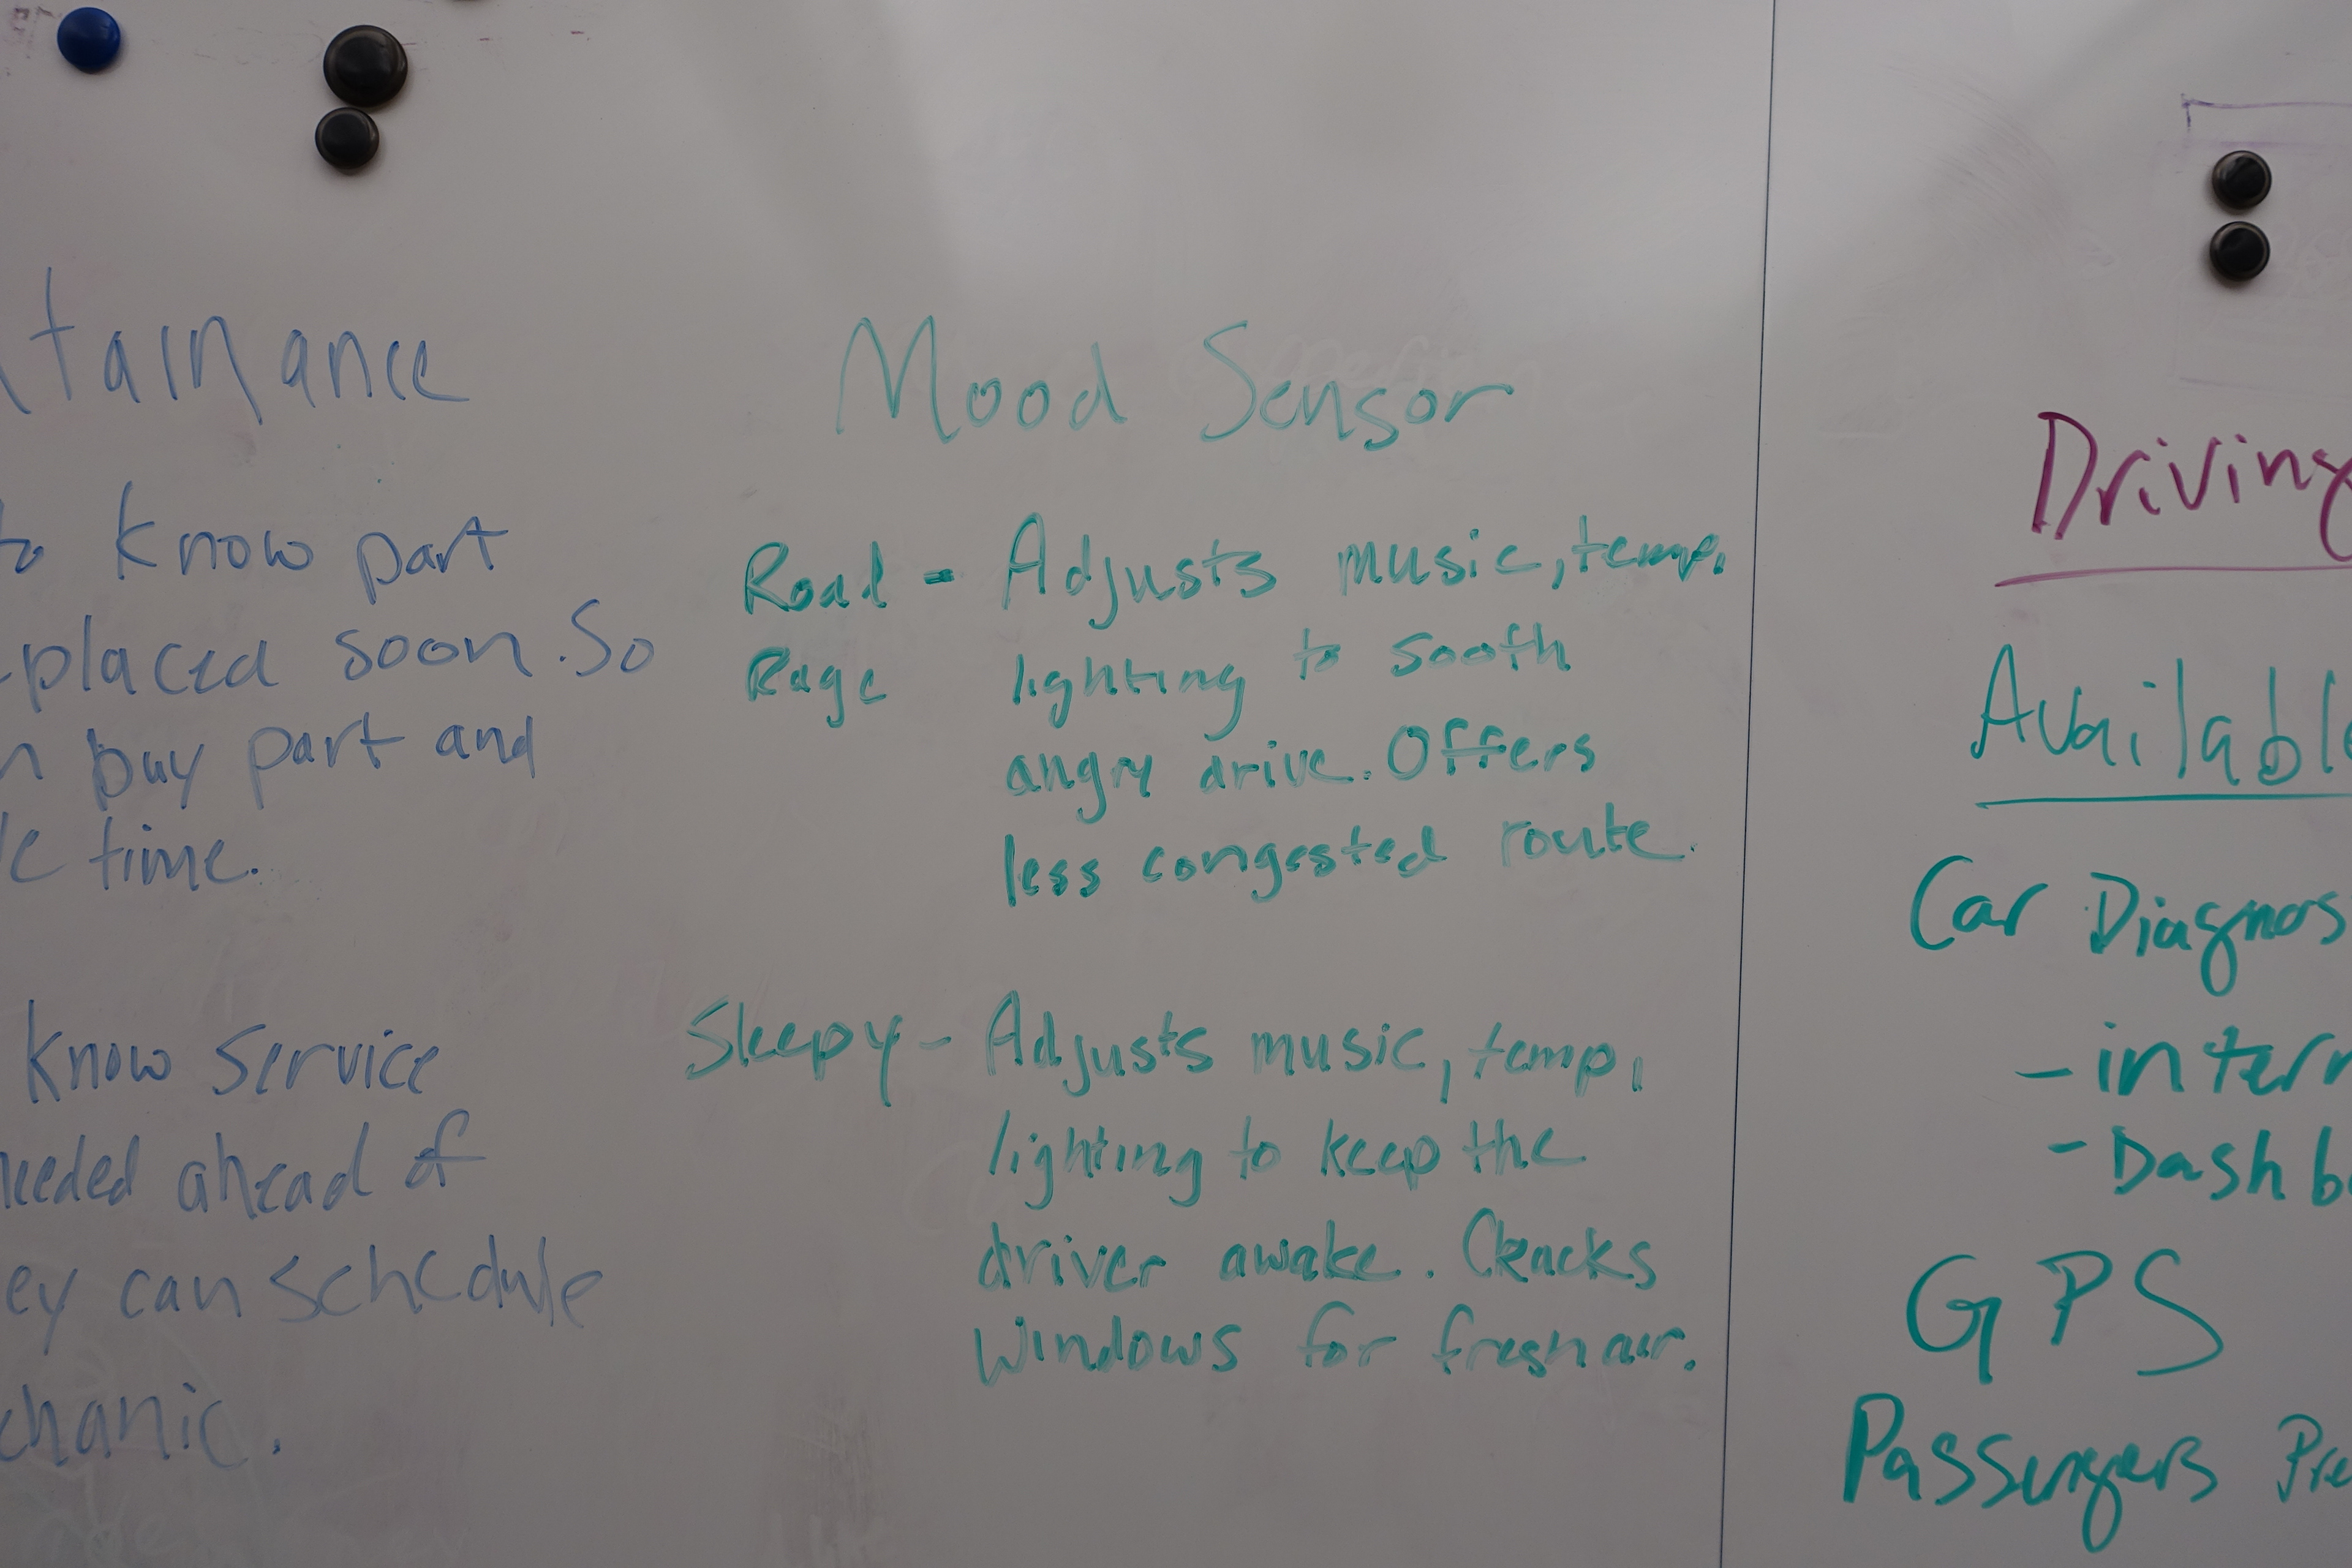 tainance
to know part
placed soon. So
buy part and
time.
know service
needed ahead of
ey can schedule
chanic.
Mood Sensor
Road - Adjusts music, temp,
Rage lighting to sooth
angry drive. Offers
less congested route.
Sleepy - Adjusts music, temp,
lighting to keep the
driver awake. Cracks
windows for fresh air.
Driving
Available
Car Diagnos
- intern
- Dash b
GPS
Passengers Pre